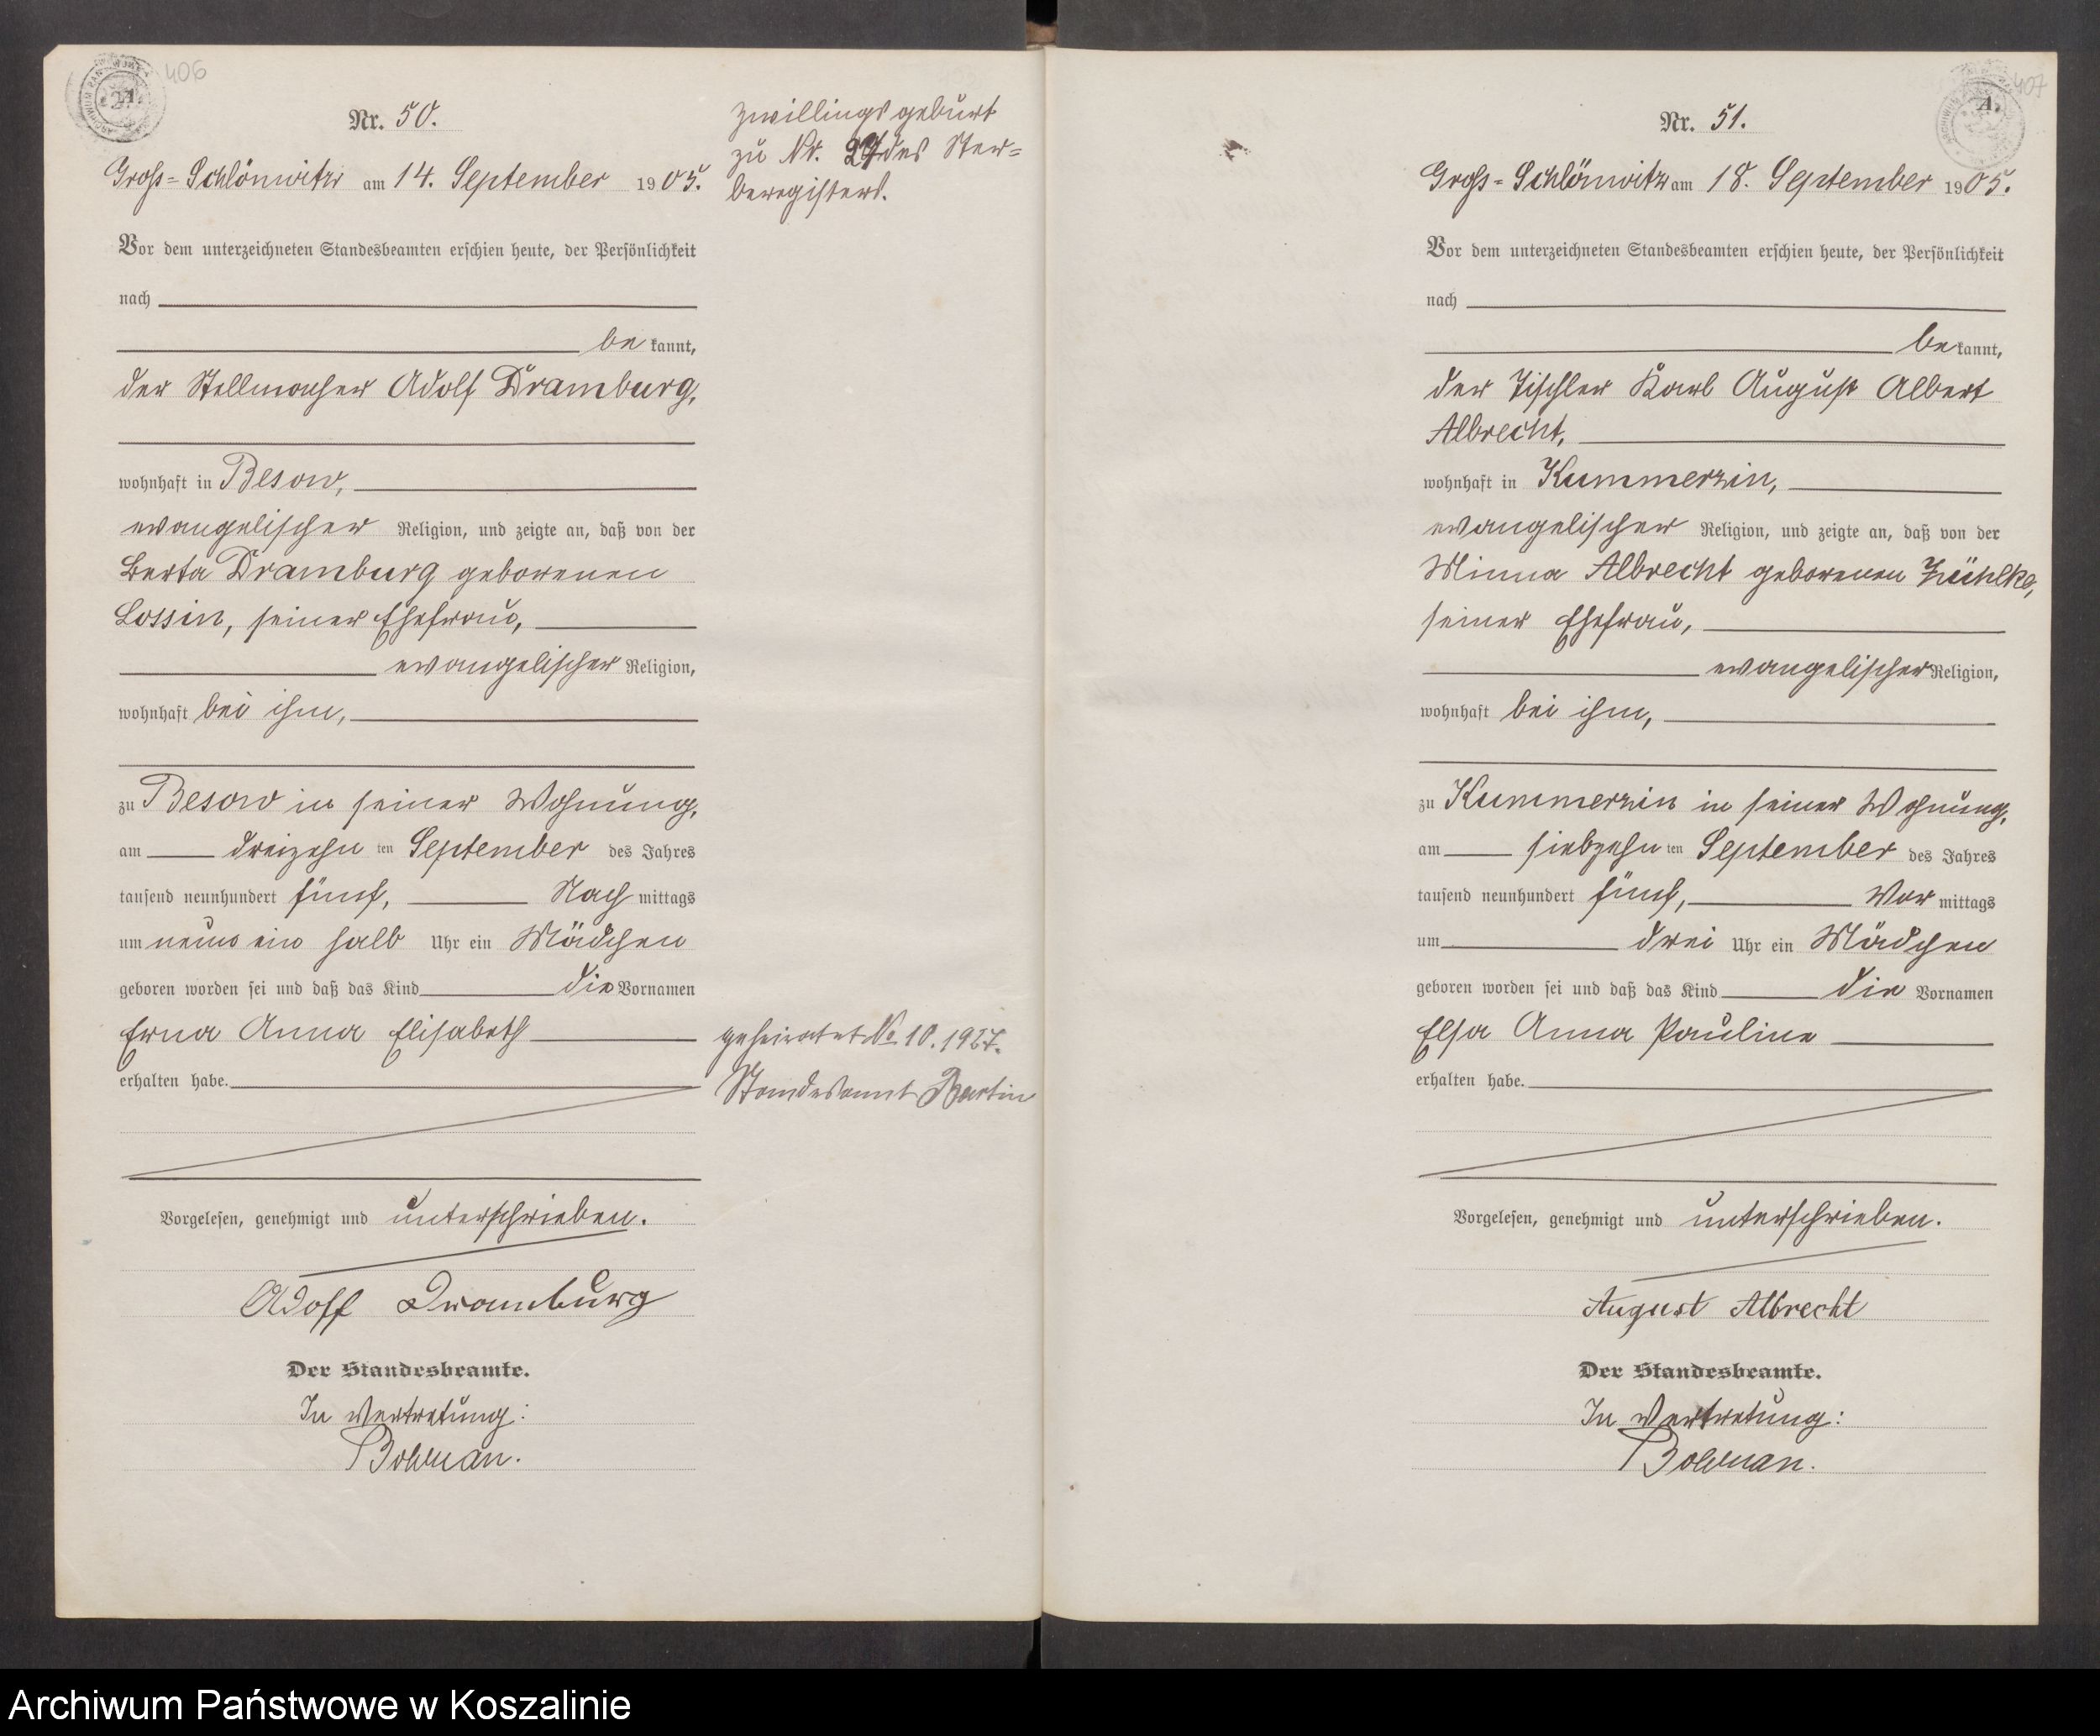 406
Nr. 50.
Groß-Schlönwitz am 14. September 1905.
Vor dem unterzeichneten Standesbeamten erschien heute, der Persönlichkeit
nach
be kannt,
der Stellmacher Adolf Dramburg,
wohnhaft in Besow,
evangelischer Religion, und zeigte an, daß von der
Berta Dramburg geborenen
Lossin, seiner Ehefrau,
evangelischer Religion,
wohnhaft bei ihm,
zu Besow in seiner Wohnung,
am dreizehn ten September des Jahres
tausend neunhundert fünf, Nach mittags
um neun ein halb Uhr ein Mädchen
geboren worden sei und daß das Kind die Vornamen
Erna Anna Elisabeth
erhalten habe.
Vorgelesen, genehmigt und unterschrieben.
Adolf Dramburg
Der Standesbeamte.
In Vertretung:
Zwillingsgeburt
zu Nr. des Ster-
beregisters.
geheiratet No 10. 1927.
Standesamt Bartin
407
A.
Nr. 51.
Groß-Schlönwitz am 18. September 1905.
Vor dem unterzeichneten Standesbeamten erschien heute, der Persönlichkeit
nach
be kannt,
der Tischler Karl August Albert
Albrecht,
wohnhaft in Kummerzin,
evangelischer Religion, und zeigte an, daß von der
Minna Albrecht geborenen Zühlke,
seiner Ehefrau,
evangelischer Religion,
wohnhaft bei ihm,
zu Kummerzin in seiner Wohnung,
am siebzehn ten September des Jahres
tausend neunhundert fünf, Vor mittags
um drei Uhr ein Mädchen
geboren worden sei und daß das Kind die Vornamen
Elsa Anna Pauline
erhalten habe.
Vorgelesen, genehmigt und unterschrieben.
August Albrecht
Der Standesbeamte.
In Vertretung:
Archiwum Państwowe w Koszalinie